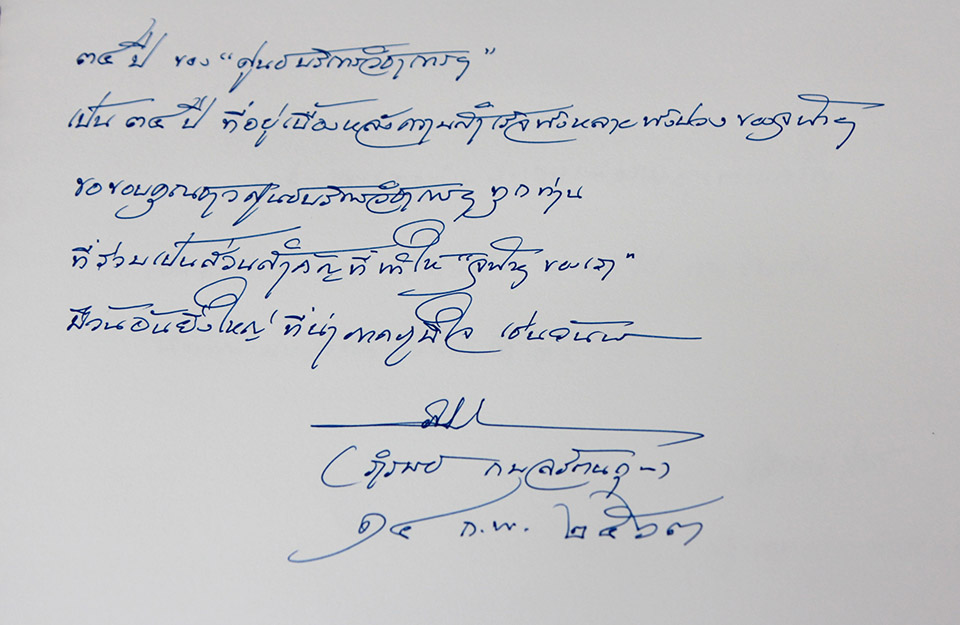 ๓๔ ปี ของ "ศูนย์บริการวิชาการฯ"
เป็น ๓๔ ปี ที่อยู่เบื้องหลังความสำเร็จทั้งหลายทั้งปวง ของจุฬาฯ
ขอขอบคุณชาวศูนย์บริการวิชาการฯ ทุกท่าน
ที่ร่วมเป็นส่วนสำคัญที่ทำให้ "จุฬาฯ ของเรา"
มีวันอันยิ่งใหญ่ ที่น่าภาคภูมิใจ เช่นวันนี้
( ภิรมย์ กมลรัตนกุล )
๑๔ ก.พ. ๒๕๖๓